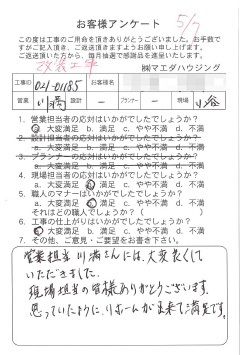 お客様アンケート
5/7
この度は工事のご用命を頂きありがとうございました。お手数で
すがご記入頂き、ご返送頂きますようお願い申し上げます。
ご返送頂いた方から、毎月抽選で感謝品を進呈いたします。
改装工事
㈱マエダハウジング
工事ID 041-01185 お客様名
営業 川満 設計 ー プランナー ー 現場 小谷
1. 営業担当者の応対はいかがでしたでしょうか?
a. 大変満足 b. 満足 c. やや不満 d. 不満
2. 設計担当者の応対はいかがでしたでしょうか?
a. 大変満足 b. 満足 c. やや不満 d. 不満
3. プランナーの応対はいかがでしたでしょうか?
a. 大変満足 b. 満足 c. やや不満 d. 不満
4. 現場担当者の応対はいかがでしたでしょうか?
a. 大変満足 b. 満足 c. やや不満 d. 不満
5. 職人のマナーはいかがでしたでしょうか?
a. 大変満足 b. 満足 c. やや不満 d. 不満
それはどの職人でしょうか?( )
6. 工事の仕上がりはいかがでしたでしょうか?
a. 大変満足 b. 満足 c. やや不満 d. 不満
7. その他、ご意見・ご要望をお書き下さい。
営業担当 川満さんには、大変良くして
いただきました。
現場担当の皆様ありがとうございます。
思っていたようにリホームが出来て満足です。